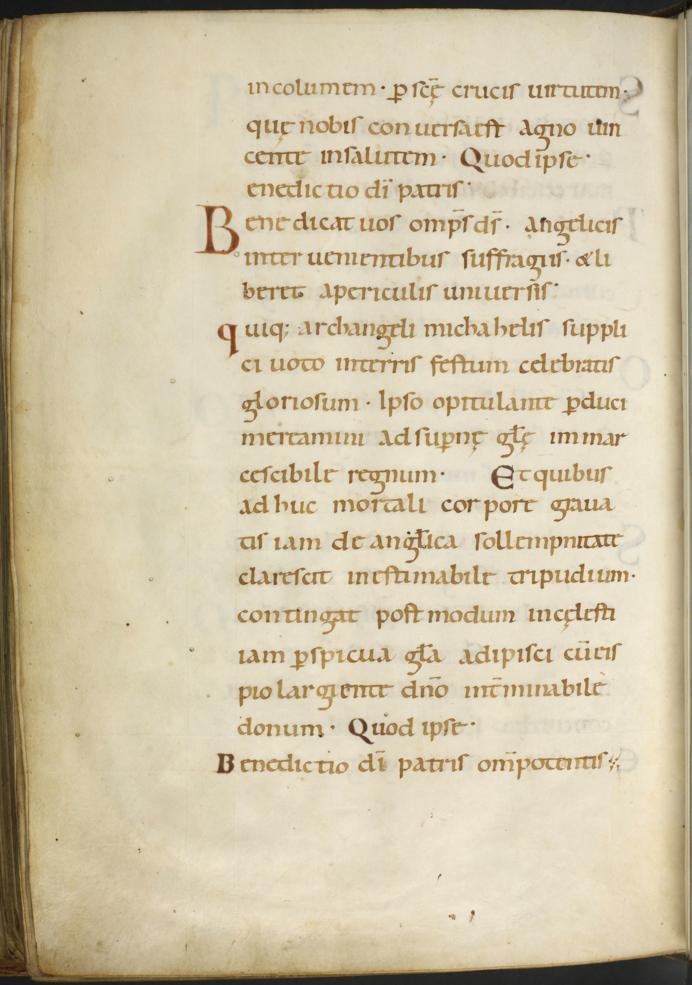 incolumem · ꝑ scę̄ crucis uirtutem ·
quę nobis conuersa est agno uin
cente in salutem · Quod ip̄se ·
enedictio dī patris ·
Benedicat uos omp̄s ds̄ · angelicis
interuenientibus suffragiis · & li
beret a periculis uniuersis ·
quiq; archangeli michahelis suppli
ci uoto in terris festum celebratis
gloriosum · Ipso opitulante ꝑduci
mereamini ad suꝑnę gl̄ę immar
cescibile regnum · Et quibus
adhuc mortali corpore graua
tis iam de angl̄ica sollempnitate
clarescit inestimabile tripudium ·
contingat postmodum in cęlesti
iam ꝑspicua gl̄a adipisci cū eis
pio largiente dn̄o int̄minabile
donum · Quod ipse ·
Benedictio dī patris om̄potentis